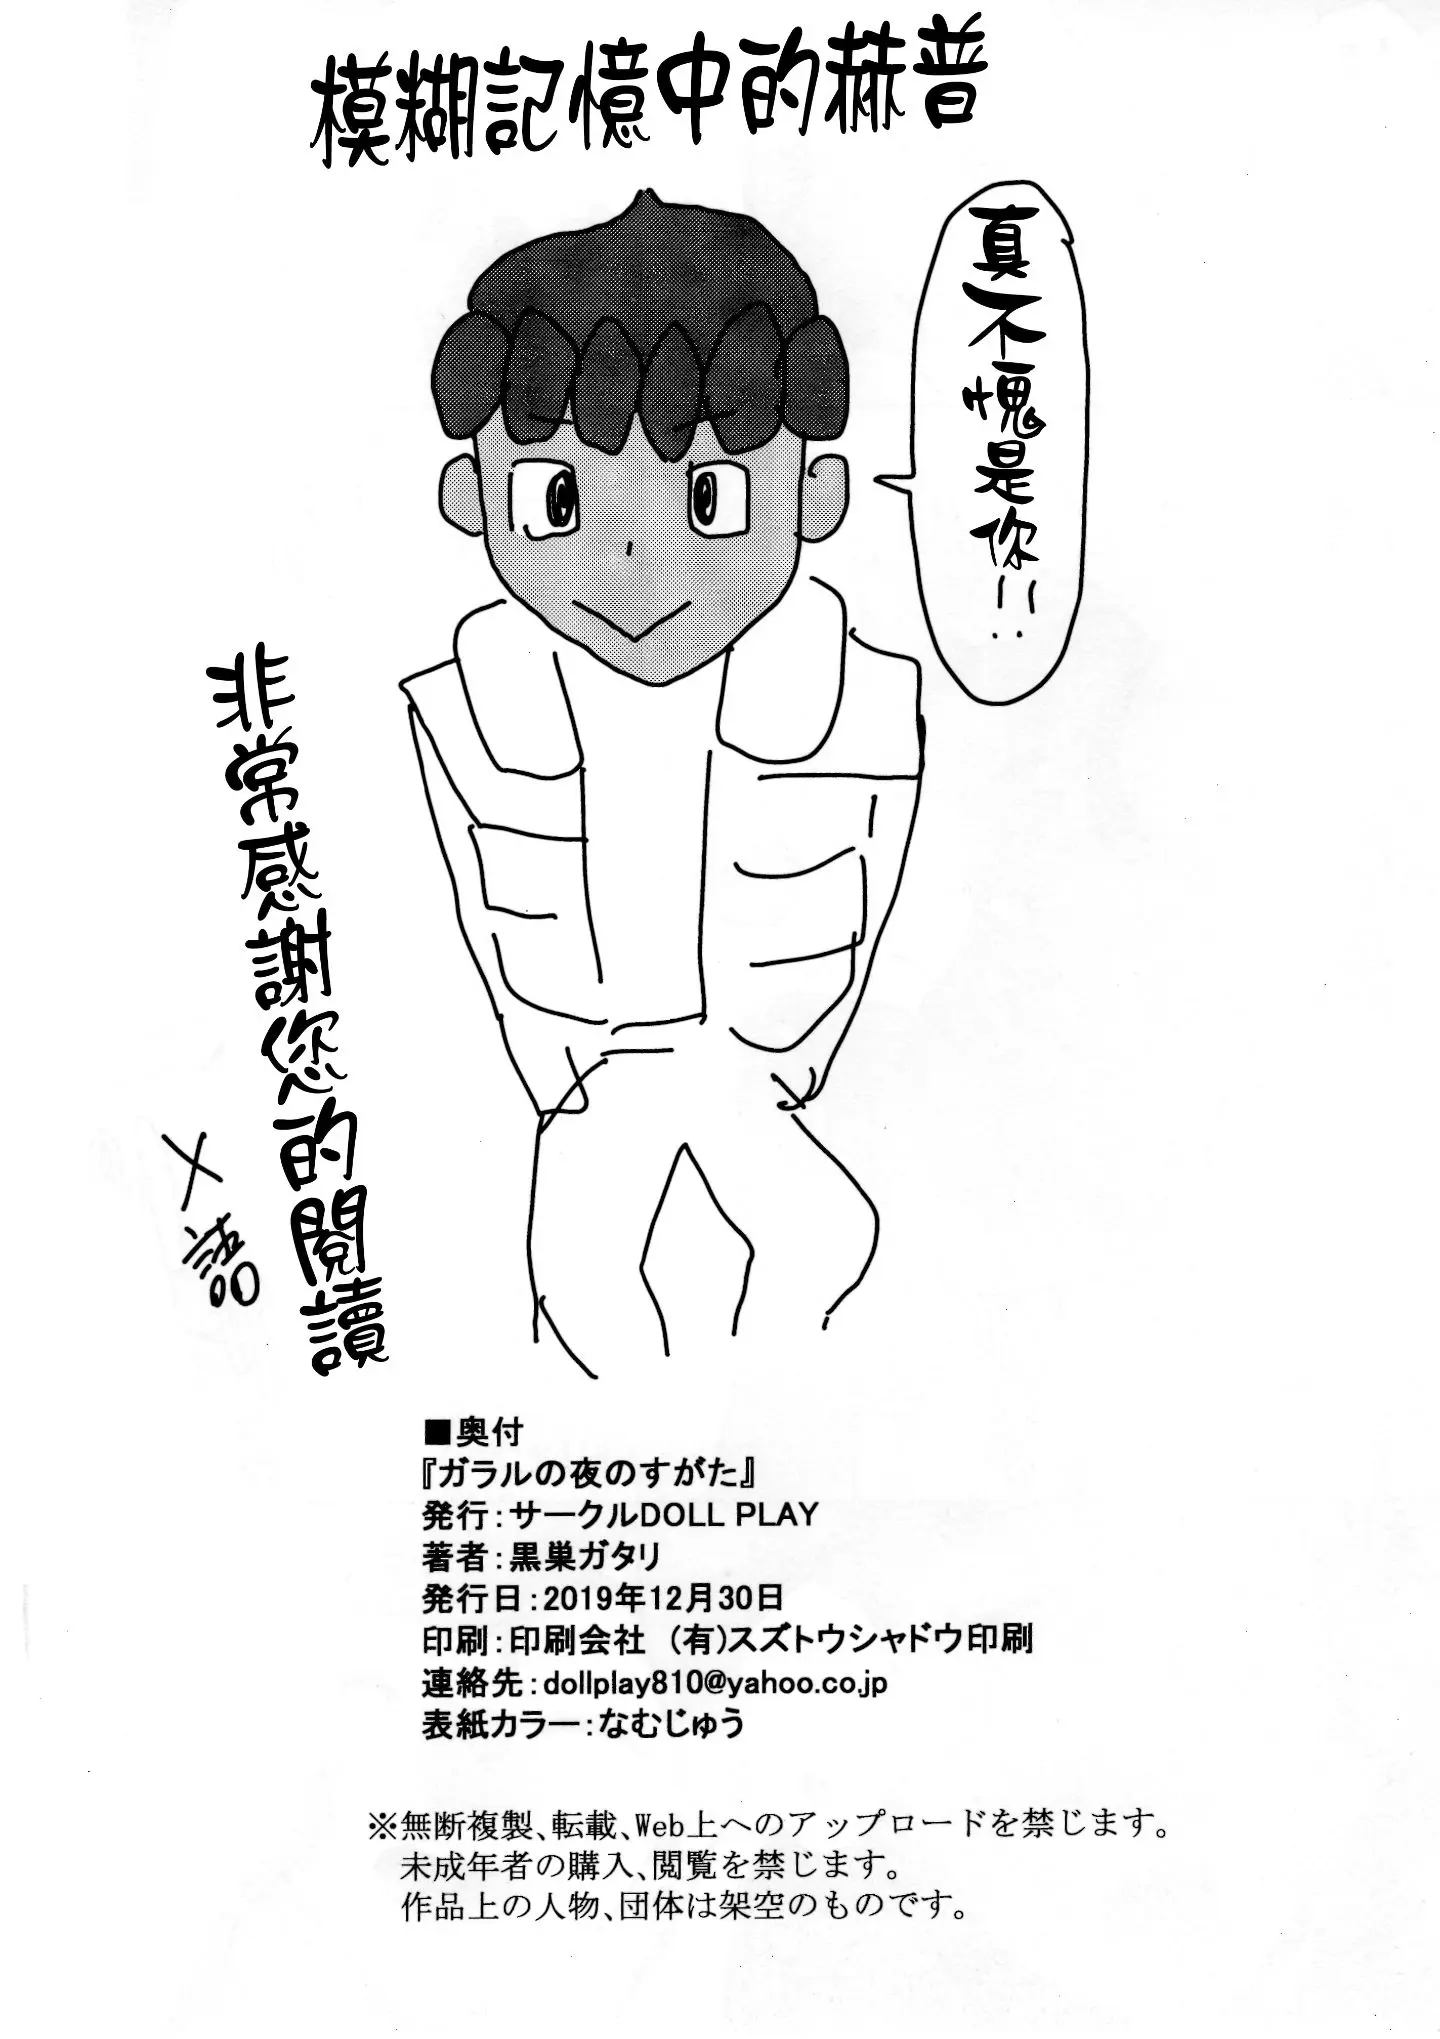 模糊記憶中的赫普
真不愧是你!!
非常感謝您的閱讀
■奥付
『ガラルの夜のすがた』
発行：サークルDOLL PLAY
著者：黒巣ガタリ
発行日：2019年12月30日
印刷：印刷会社　(有)スズトウシャドウ印刷
連絡先：dollplay810@yahoo.co.jp
表紙カラー：なむじゅう
※無断複製、転載、Web上へのアップロードを禁じます。
未成年者の購入、閲覧を禁じます。
作品上の人物、団体は架空のものです。